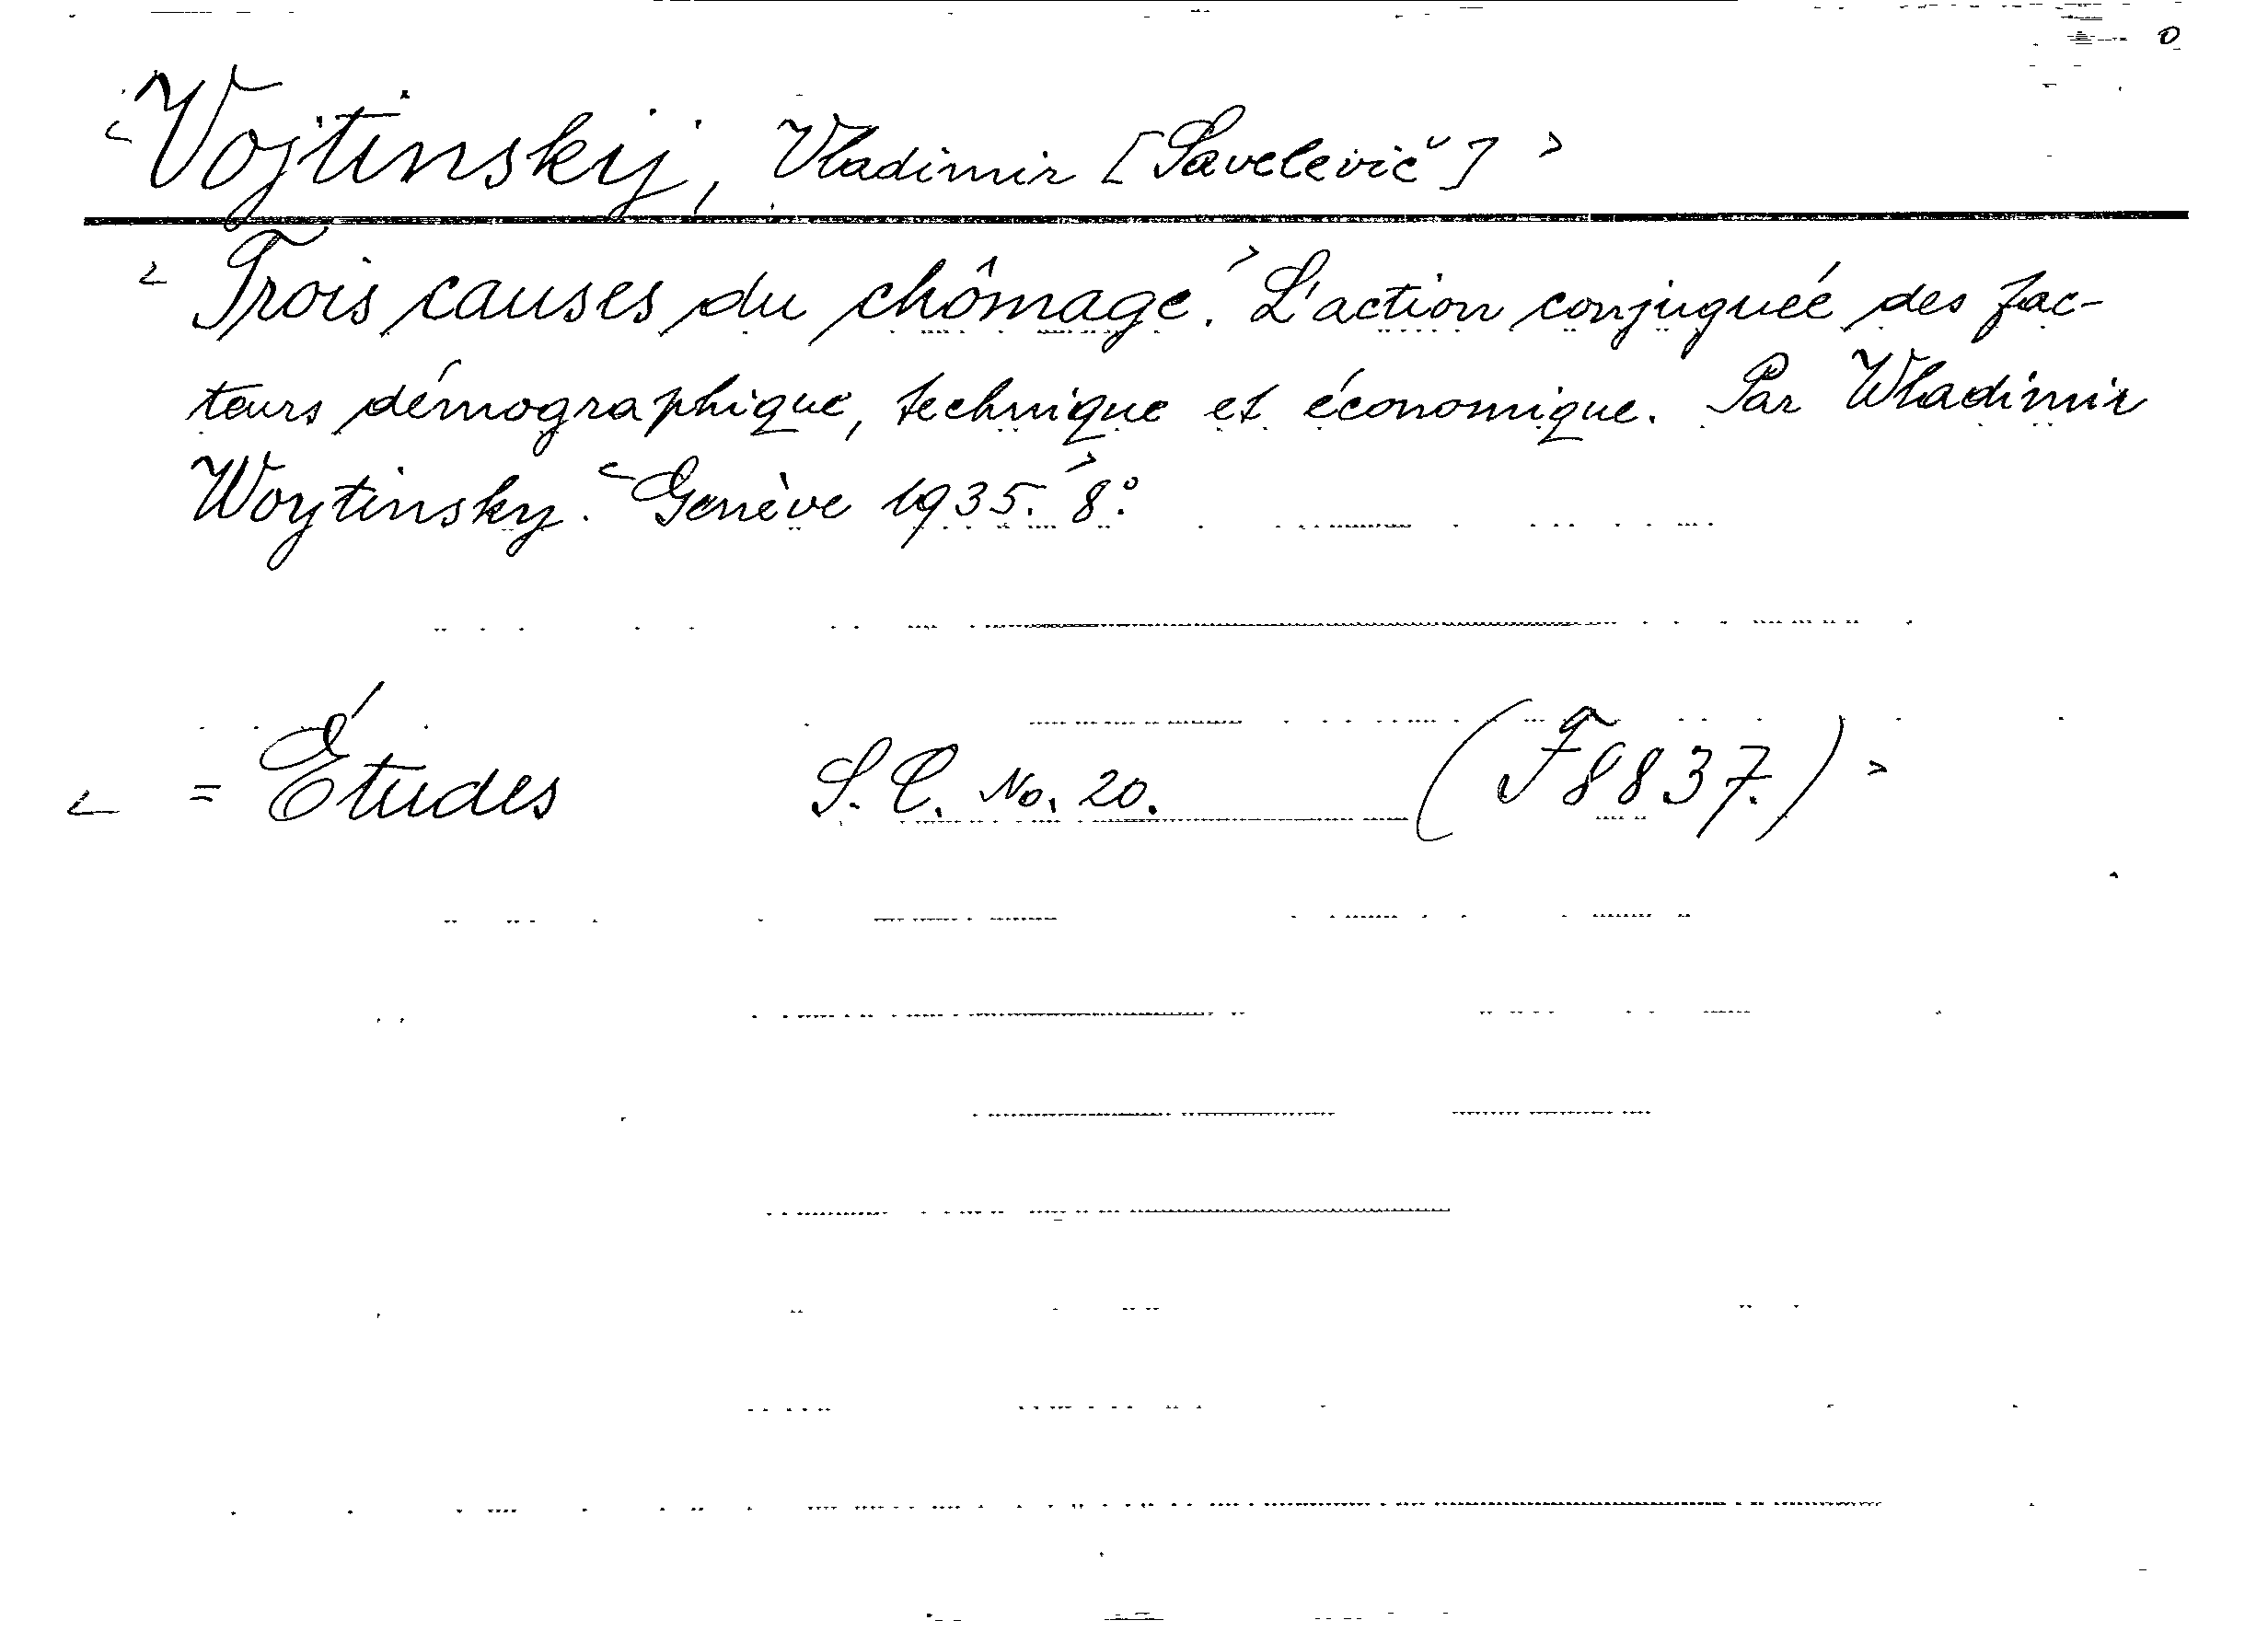 0
<Vojtinskij, Vladimir [Savelevič]>
<Trois causes du chômage.> L'action conjuguée des fac-
teurs démographique, technique et économique. Par Wladimir
Woytinsky. <Genève 1935.> 8°.
< = Études S.C. No. 20. (F8837.) >